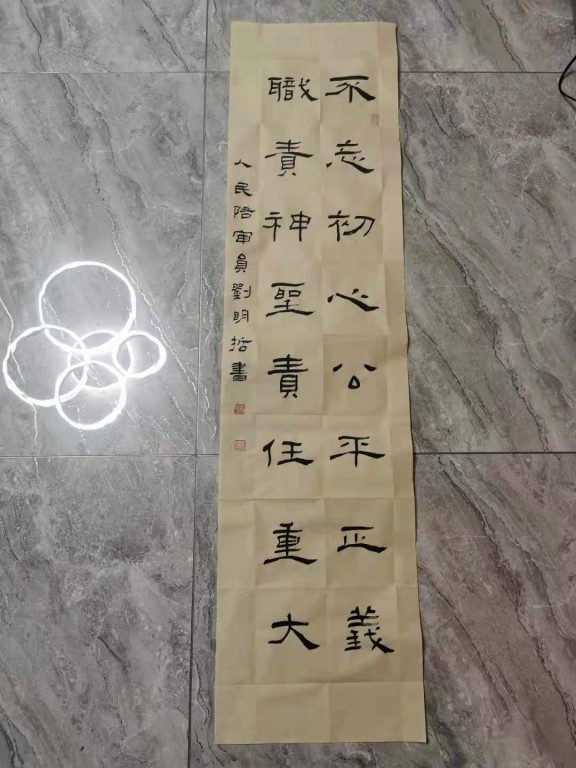 不忘初心公平正義
職責神聖責任重大
人民陪审員劉明哲書